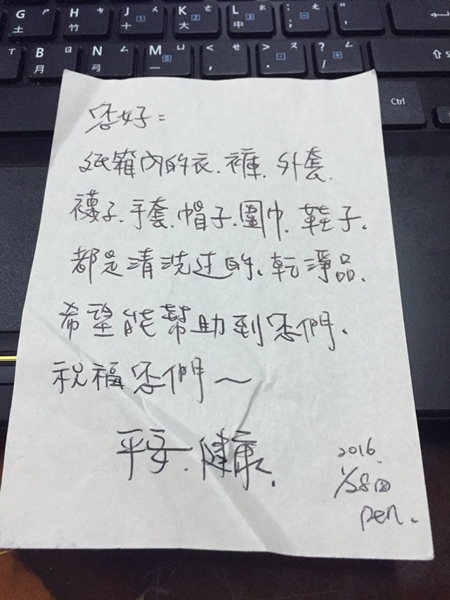 G H J K L
土 竹 十 大 中
B N M
Ctrl
您好：
紙箱內的衣、褲、外套、
襪子、手套、帽子、圍巾、鞋子、
都是清洗过的、乾淨品、
希望能幫助到您們、
祝福您們～
平安、健康、
2016.
1/28
pen.